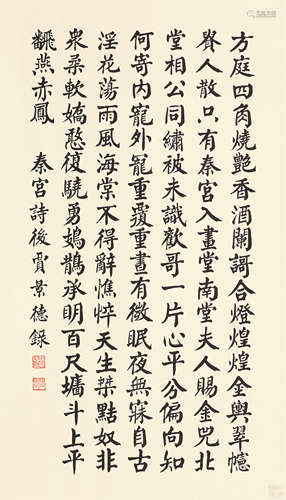 方庭四角燒艷香酒闌謌合燈煌煌金輿翠幰
人散只有秦宮入畫堂南堂夫人賜金兕北
堂相公同繡被未識歡哥一片心平分偏向知
何寄内寵外寵重覆重畫有微眠夜無寐自古
淫花蕩雨風海棠不得辭憔悴天生桀黠奴非
衆柔軟嬌憨復驍勇鳷鵲承明百尺墉斗上平
飜燕赤鳳 秦宮詩後賈景德錄